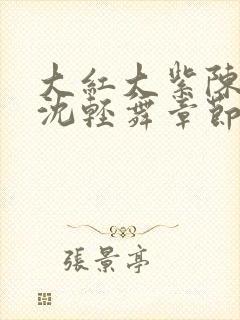 大紅大紫陳
沈輕舞章節
張景亭